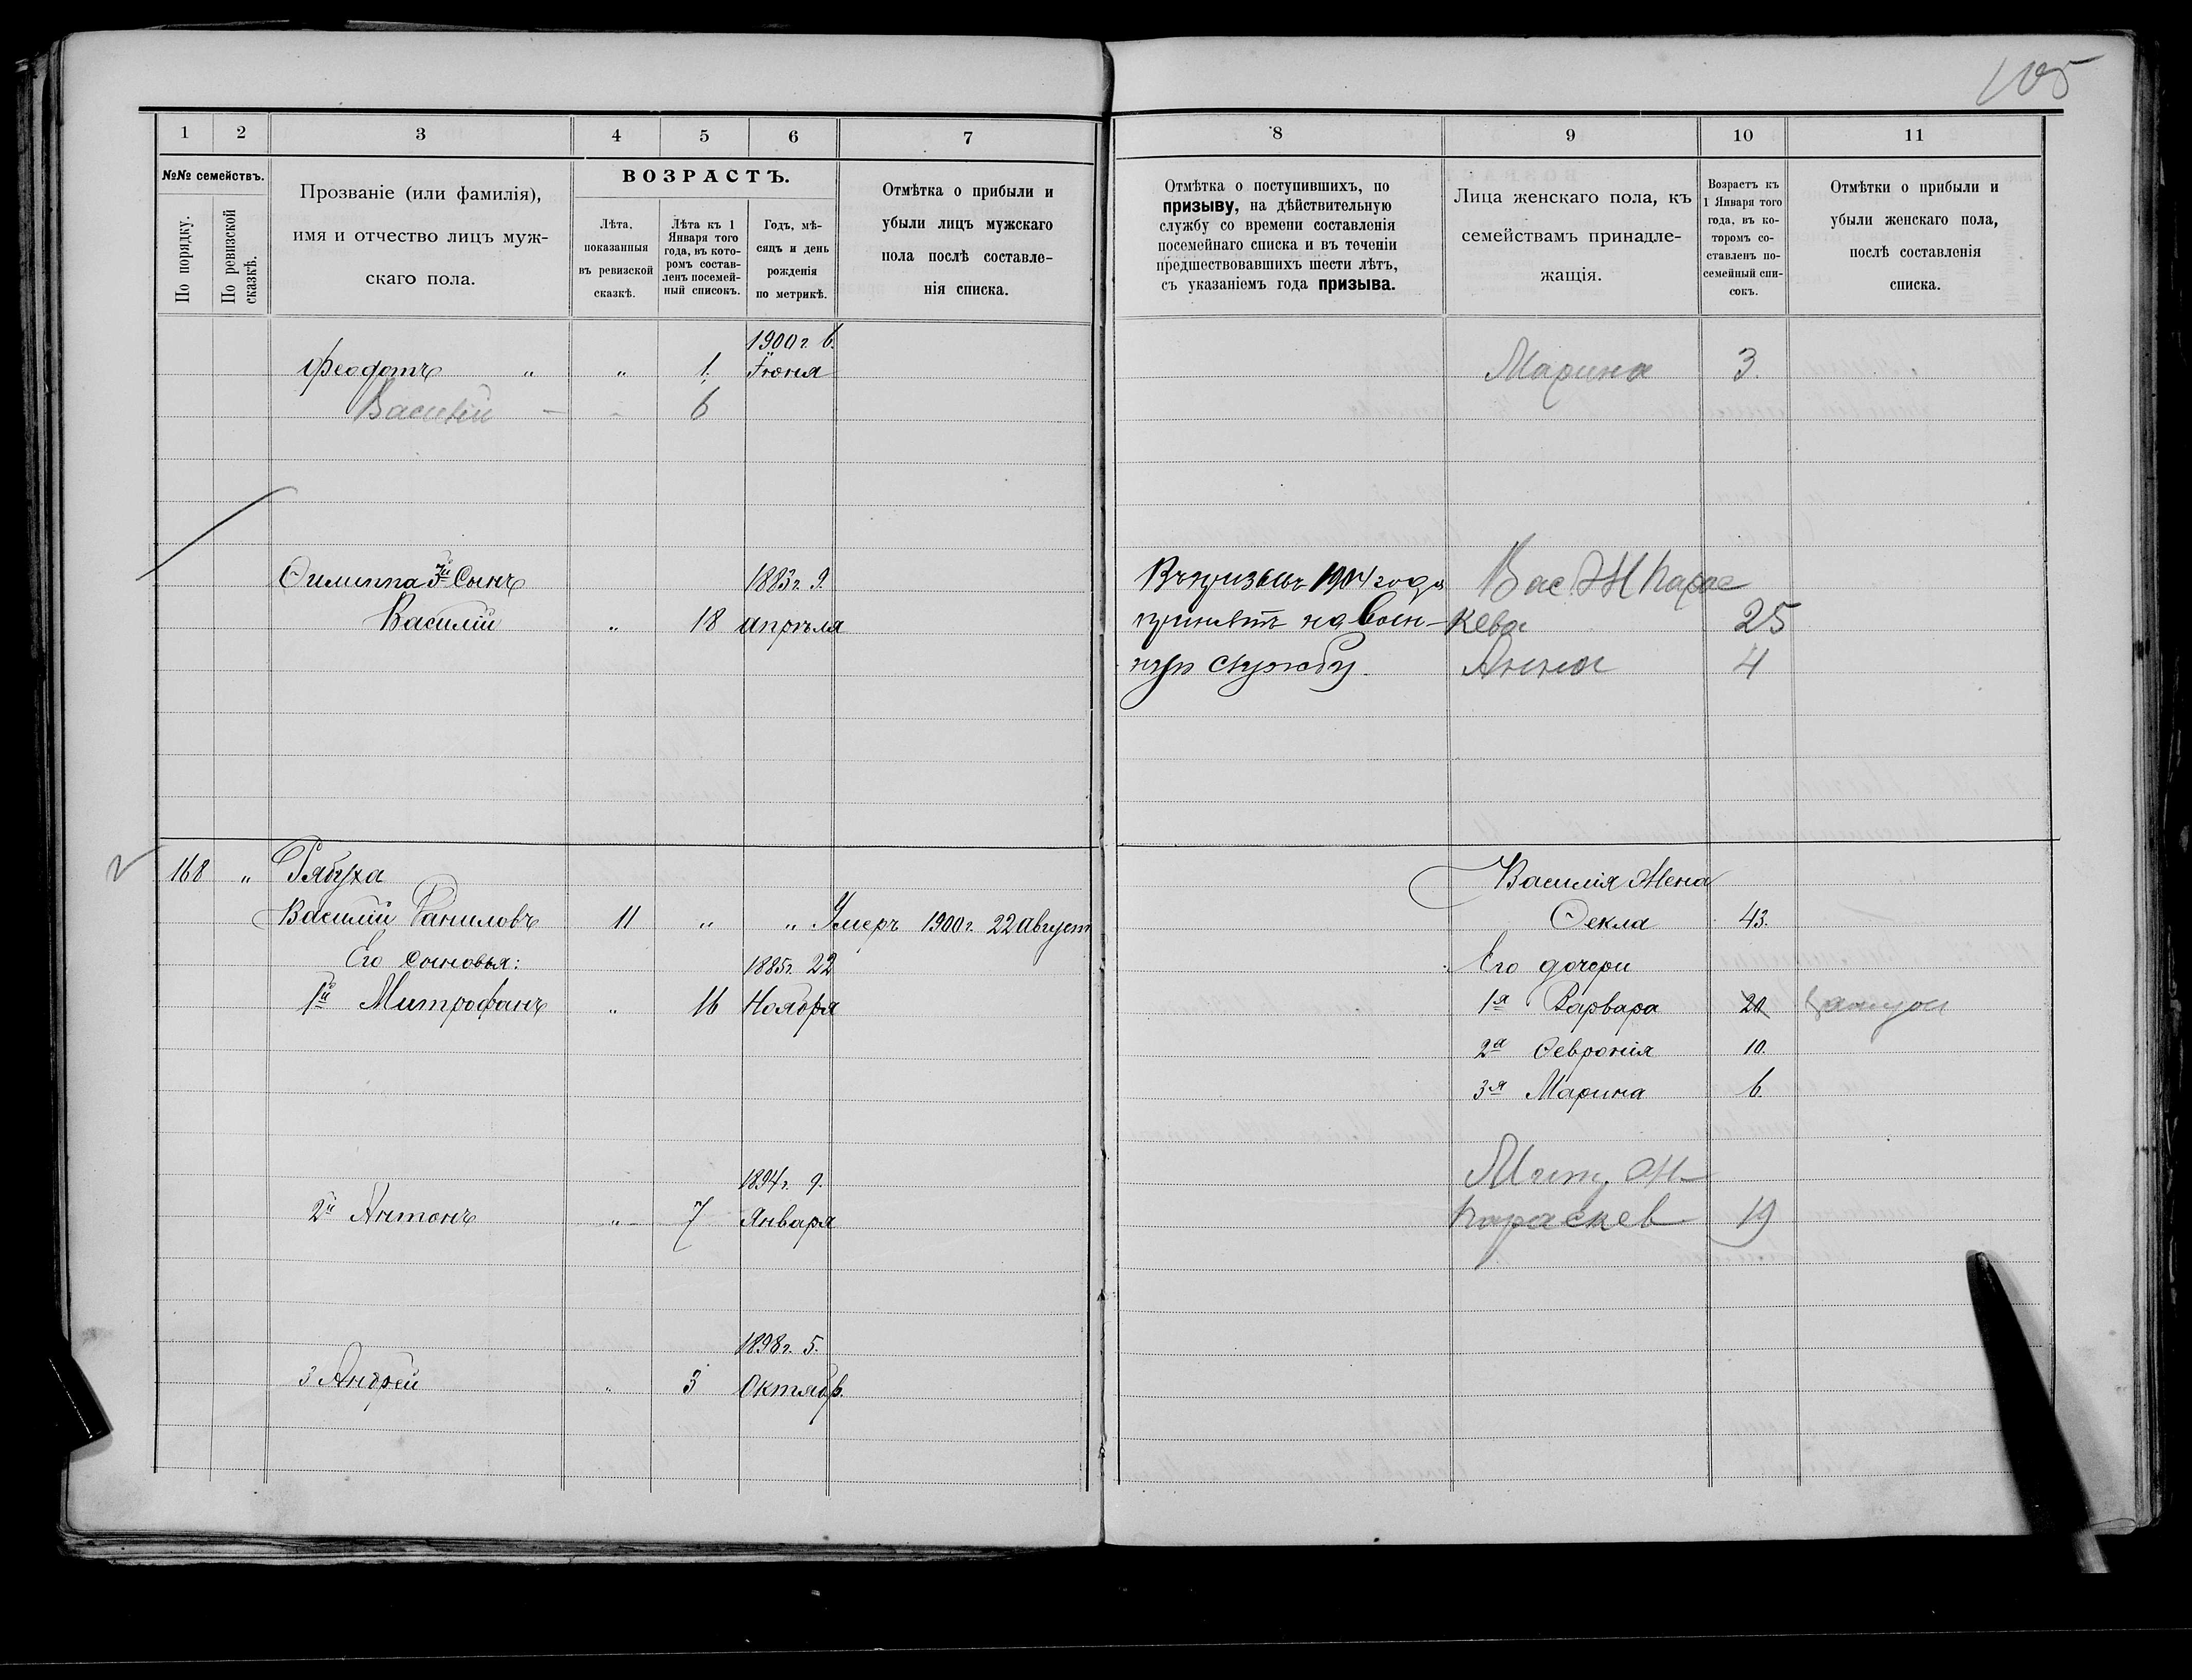 105
1 2 3 4 5 6 7
№№ семействъ.
По порядку.
По ревизской сказкѣ.
Прозваніе (или фамилія),
имя и отчество лицъ муж-
скаго пола.
ВОЗРАСТЪ.
Лѣта,
показанныя
въ ревизской
сказкѣ.
Лѣта къ 1
Января того
года, въ кото-
ромъ состав-
ленъ посемей-
ный списокъ.
Годъ, мѣ-
сяцъ и день
рожденія
по метрикѣ.
Отмѣтка о прибыли и
убыли лицъ мужскаго
пола послѣ составле-
нія списка.
1900 г. 6.
Феодотъ " " 1. Іюня
Василій — - 6
Ѳилиппа 3й Сынъ 1883 г. 9.
Василій " 18 апрѣля
168 " Рябуха
Василій Даниловъ 11 " " Умеръ 1900 г. 22 август
Его сыновья: 1885 г. 22
1й Митрофанъ " 16 Ноября
1894 г. 9.
2й Антонъ " 7 Января
1898 г. 5.
3 Андрей " 3 Октябр.
8 9 10 11
Отмѣтка о поступившихъ, по
призыву, на дѣйствительную
службу со времени составленія
посемейнаго списка и въ теченіи
предшествовавшихъ шести лѣтъ,
съ указаніемъ года призыва.
Лица женскаго пола, къ
семействамъ принадле-
жащія.
Возрастъ къ
1 Января того
года, въ ко-
торомъ со-
ставленъ по-
семейный спи-
сокъ.
Отмѣтки о прибыли и
убыли женскаго пола,
послѣ составленія
списка.
Марина 3.
Въ призывъ 1904 года Вас. Ж Парас
принятъ на Воен- кева 25
ную службу. Анна 4
Василія Жена
Ѳекла 43.
Его дочери
1я Варвара 20 замуж
2я Ѳевронія 10.
3я Марина 6.
Мит. Ж
Параскев 19